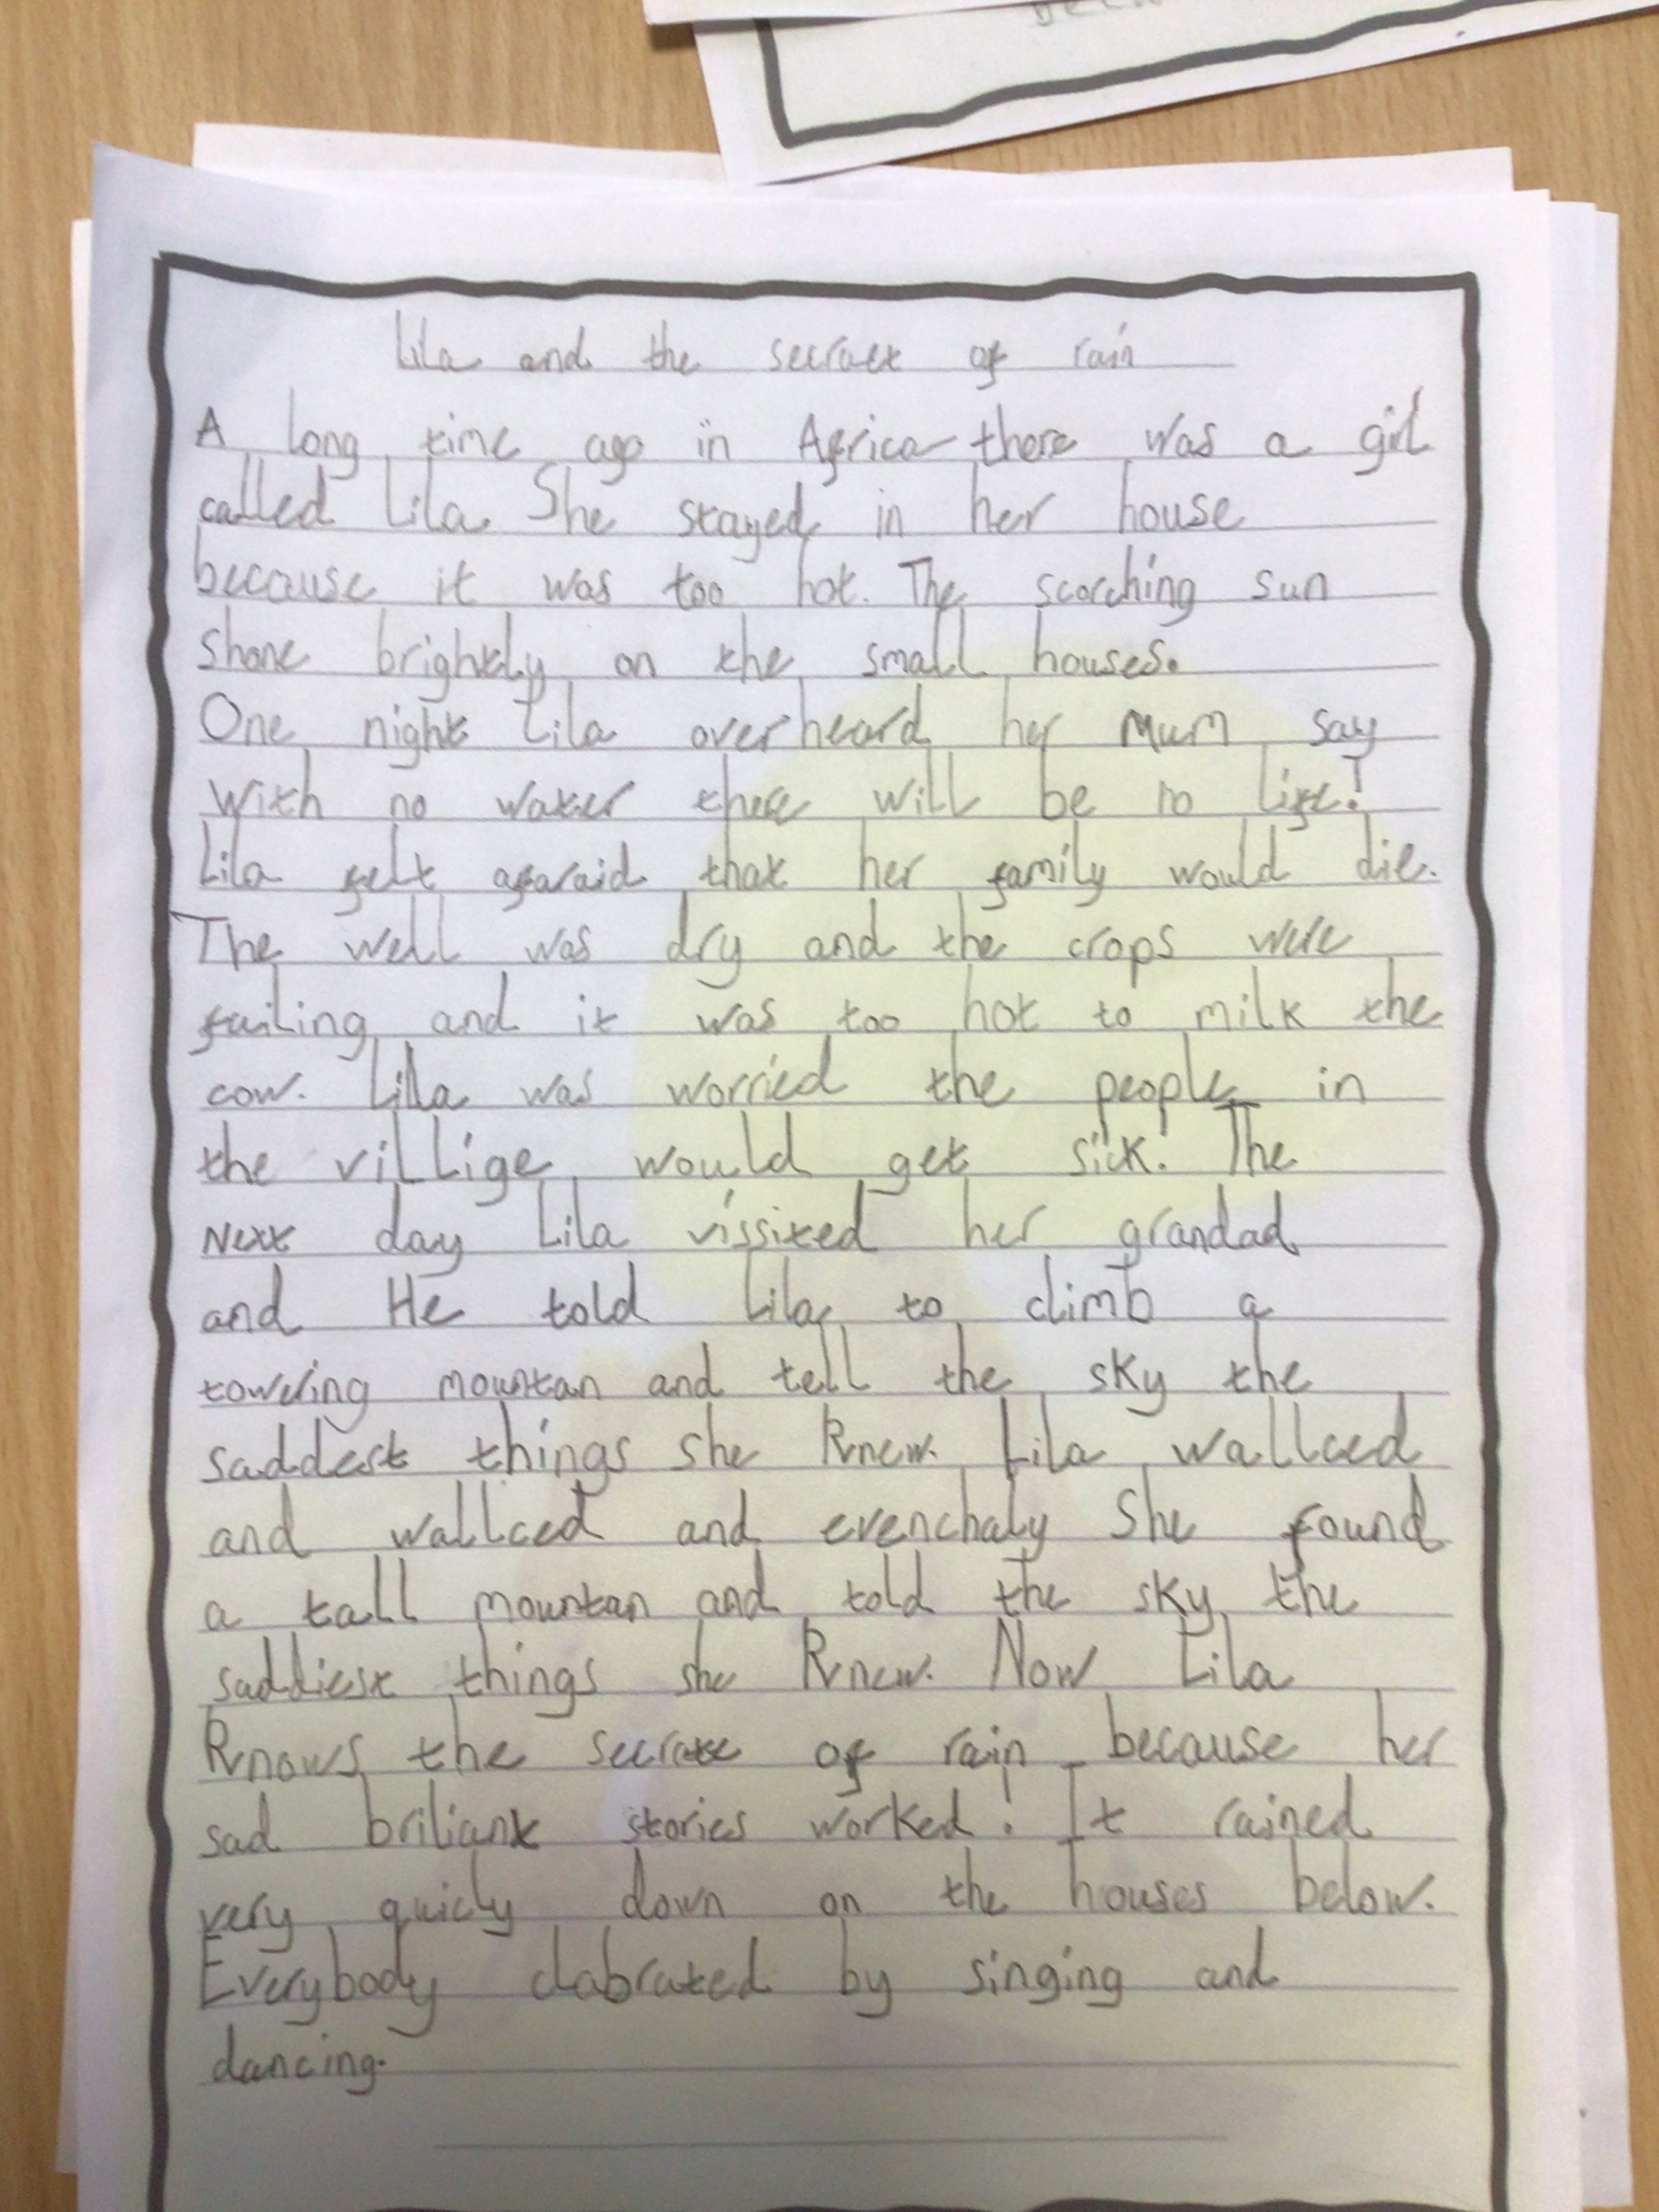 Lila and the secraet of rain
A long time ago in Africa there was a girl
called Lila. She stayed in her house
because it was too hot. The scorching sun
shone brightly on the small houses.
One night Lila overheard her Mum say
With no water there will be no life!
Lila felt afaraid that her family would die.
The well was dry and the crops were
failing and it was too hot to milk the
cow. Lilla was worried the people in
the villige would get sick. The
Next day Lila vissited her grandad
and He told Lila to climb a
towering mountan and tell the sky the
saddest things she Knew. Lila wallced
and wallced and evenchaly She found
a tall mountan and told the sky the
saddiest things she Knew. Now Lila
Knows the secrate of rain because her
sad briliant stories worked! It rained
very quicly down on the houses below.
Everybody clabrated by singing and
dancing.